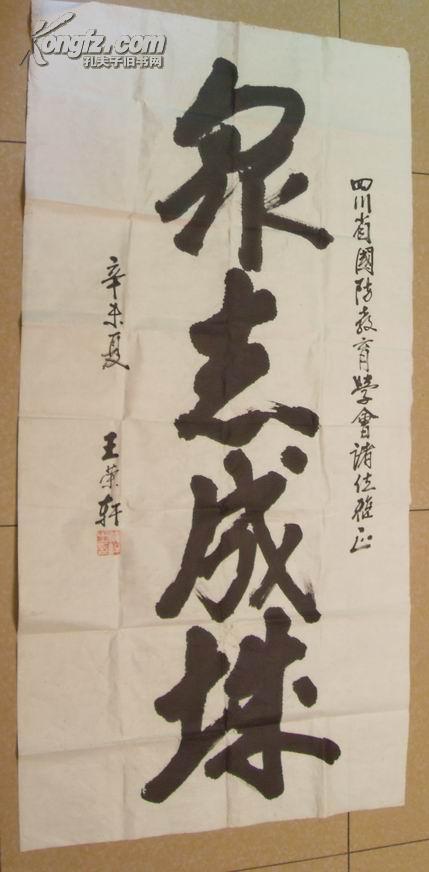 Kongfz.com
孔夫子旧书网
四川省國防教育學會諸位雅正
眾志成城
辛未夏
王荣轩